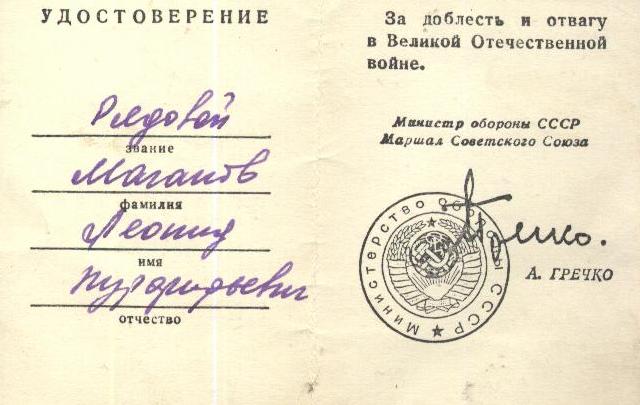 УДОСТОВЕРЕНИЕ
Рядовой
звание
Маганов
фамилия
Леонид
имя
отчество
За доблесть и отвагу
в Великой Отечественной
войне.
Министр обороны СССР
Маршал Советского Союза
Министерство Обороны СССР
А. ГРЕЧКО